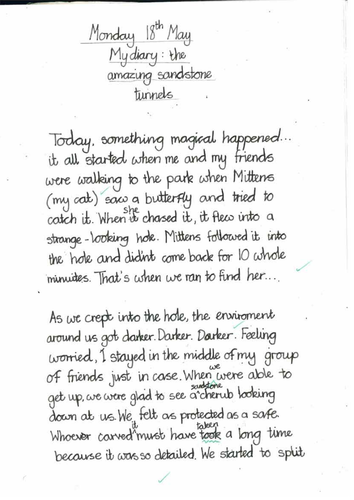 Monday 18th May
My diary: the
amazing sandstone
tunnels
Today, something magical happened...
it all started when me and my friends
were walking to the park when Mittens
(my cat) saw a butterfly and tried to
catch it. When it she chased it, it flew into a
strange-looking hole. Mittens followed it into
the hole and didint come back for 10 whole
minuites. That's when we ran to find her...
As we crept into the hole, the enviroment
around us got darker. Darker. Darker. Feeling
worried, I stayed in the middle of my group
of friends just in case. When we were able to
get up, we were glad to see a sandstone cherub looking
down at us. We felt as protected as a safe.
Whoever carved it must have took taken a long time
because it was so detailed. We started to split